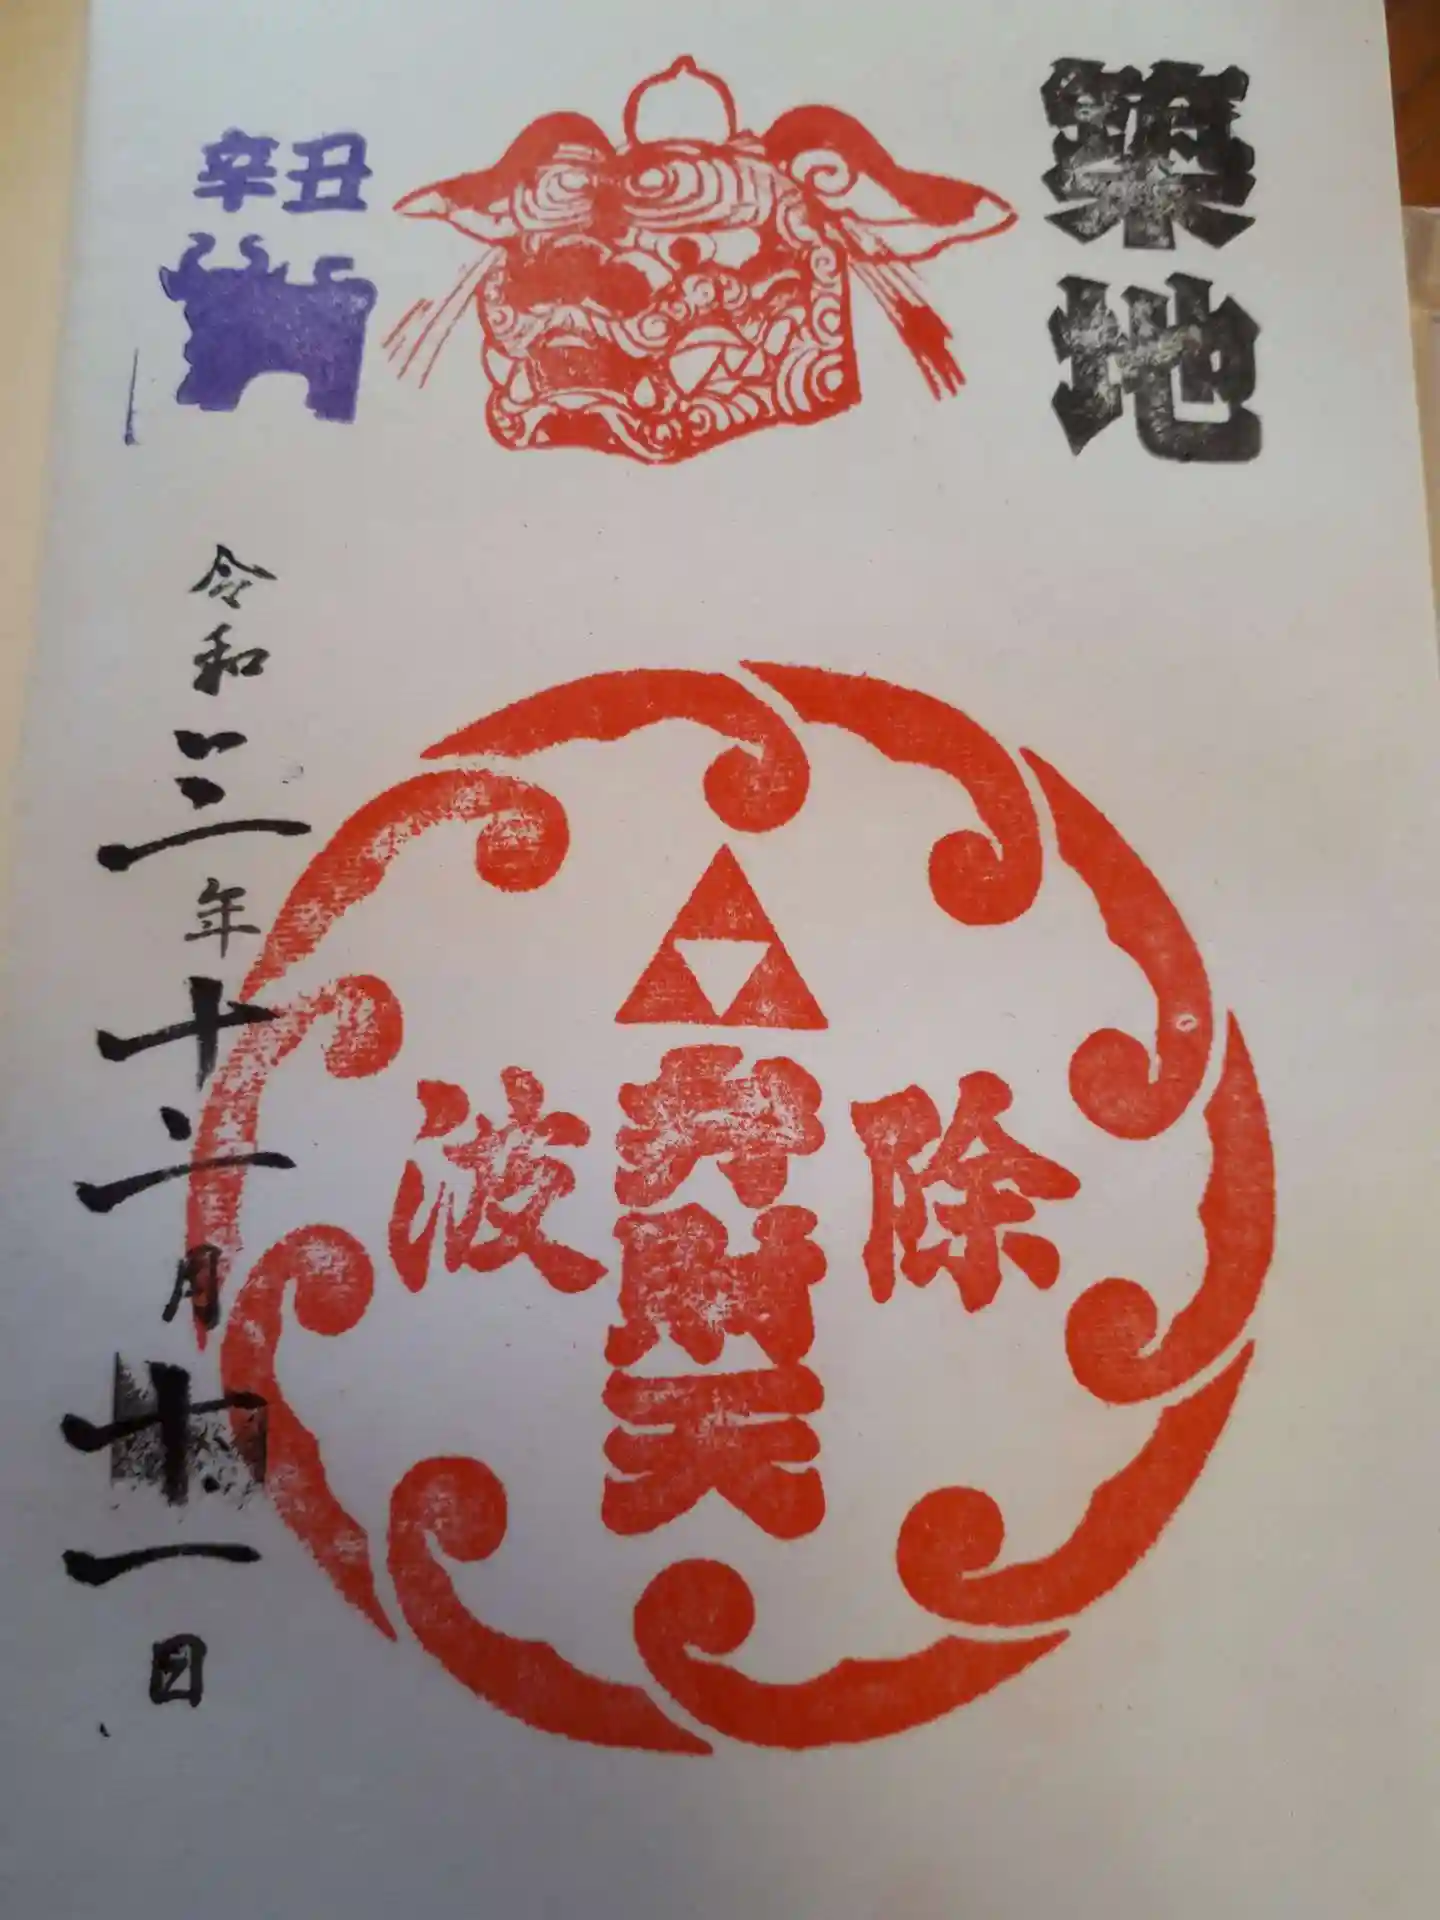 築地
除
弁財天
波
辛丑
令和三年十二月十一日